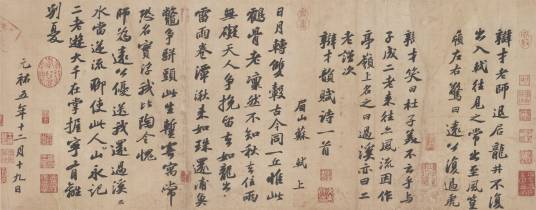 辯才老師退居龍井不復
出入軾往見之常出至風篁
嶺左右驚曰遠公復過虎
溪矣
辯才笑曰杜子美不云乎與
子成二老來往亦風流因作
亭嶺上名之曰過溪亦曰二
老謹次
辯才韻賦詩一首
眉山蘇軾上
日月轉雙轂古今同一丘惟此
鶴骨老凜然不知秋去住兩
無礙天人爭挽留去如龍出
雷雨卷潭湫來如珠還浦魚
鼈爭駢頭此生暫寄寓常
恐名實浮我比陶令愧
師為遠公優送我還過溪溪
水當逆流聊使此人山永記
二老遊大千在掌握寧有離
別憂
元祐五年十二月十九日